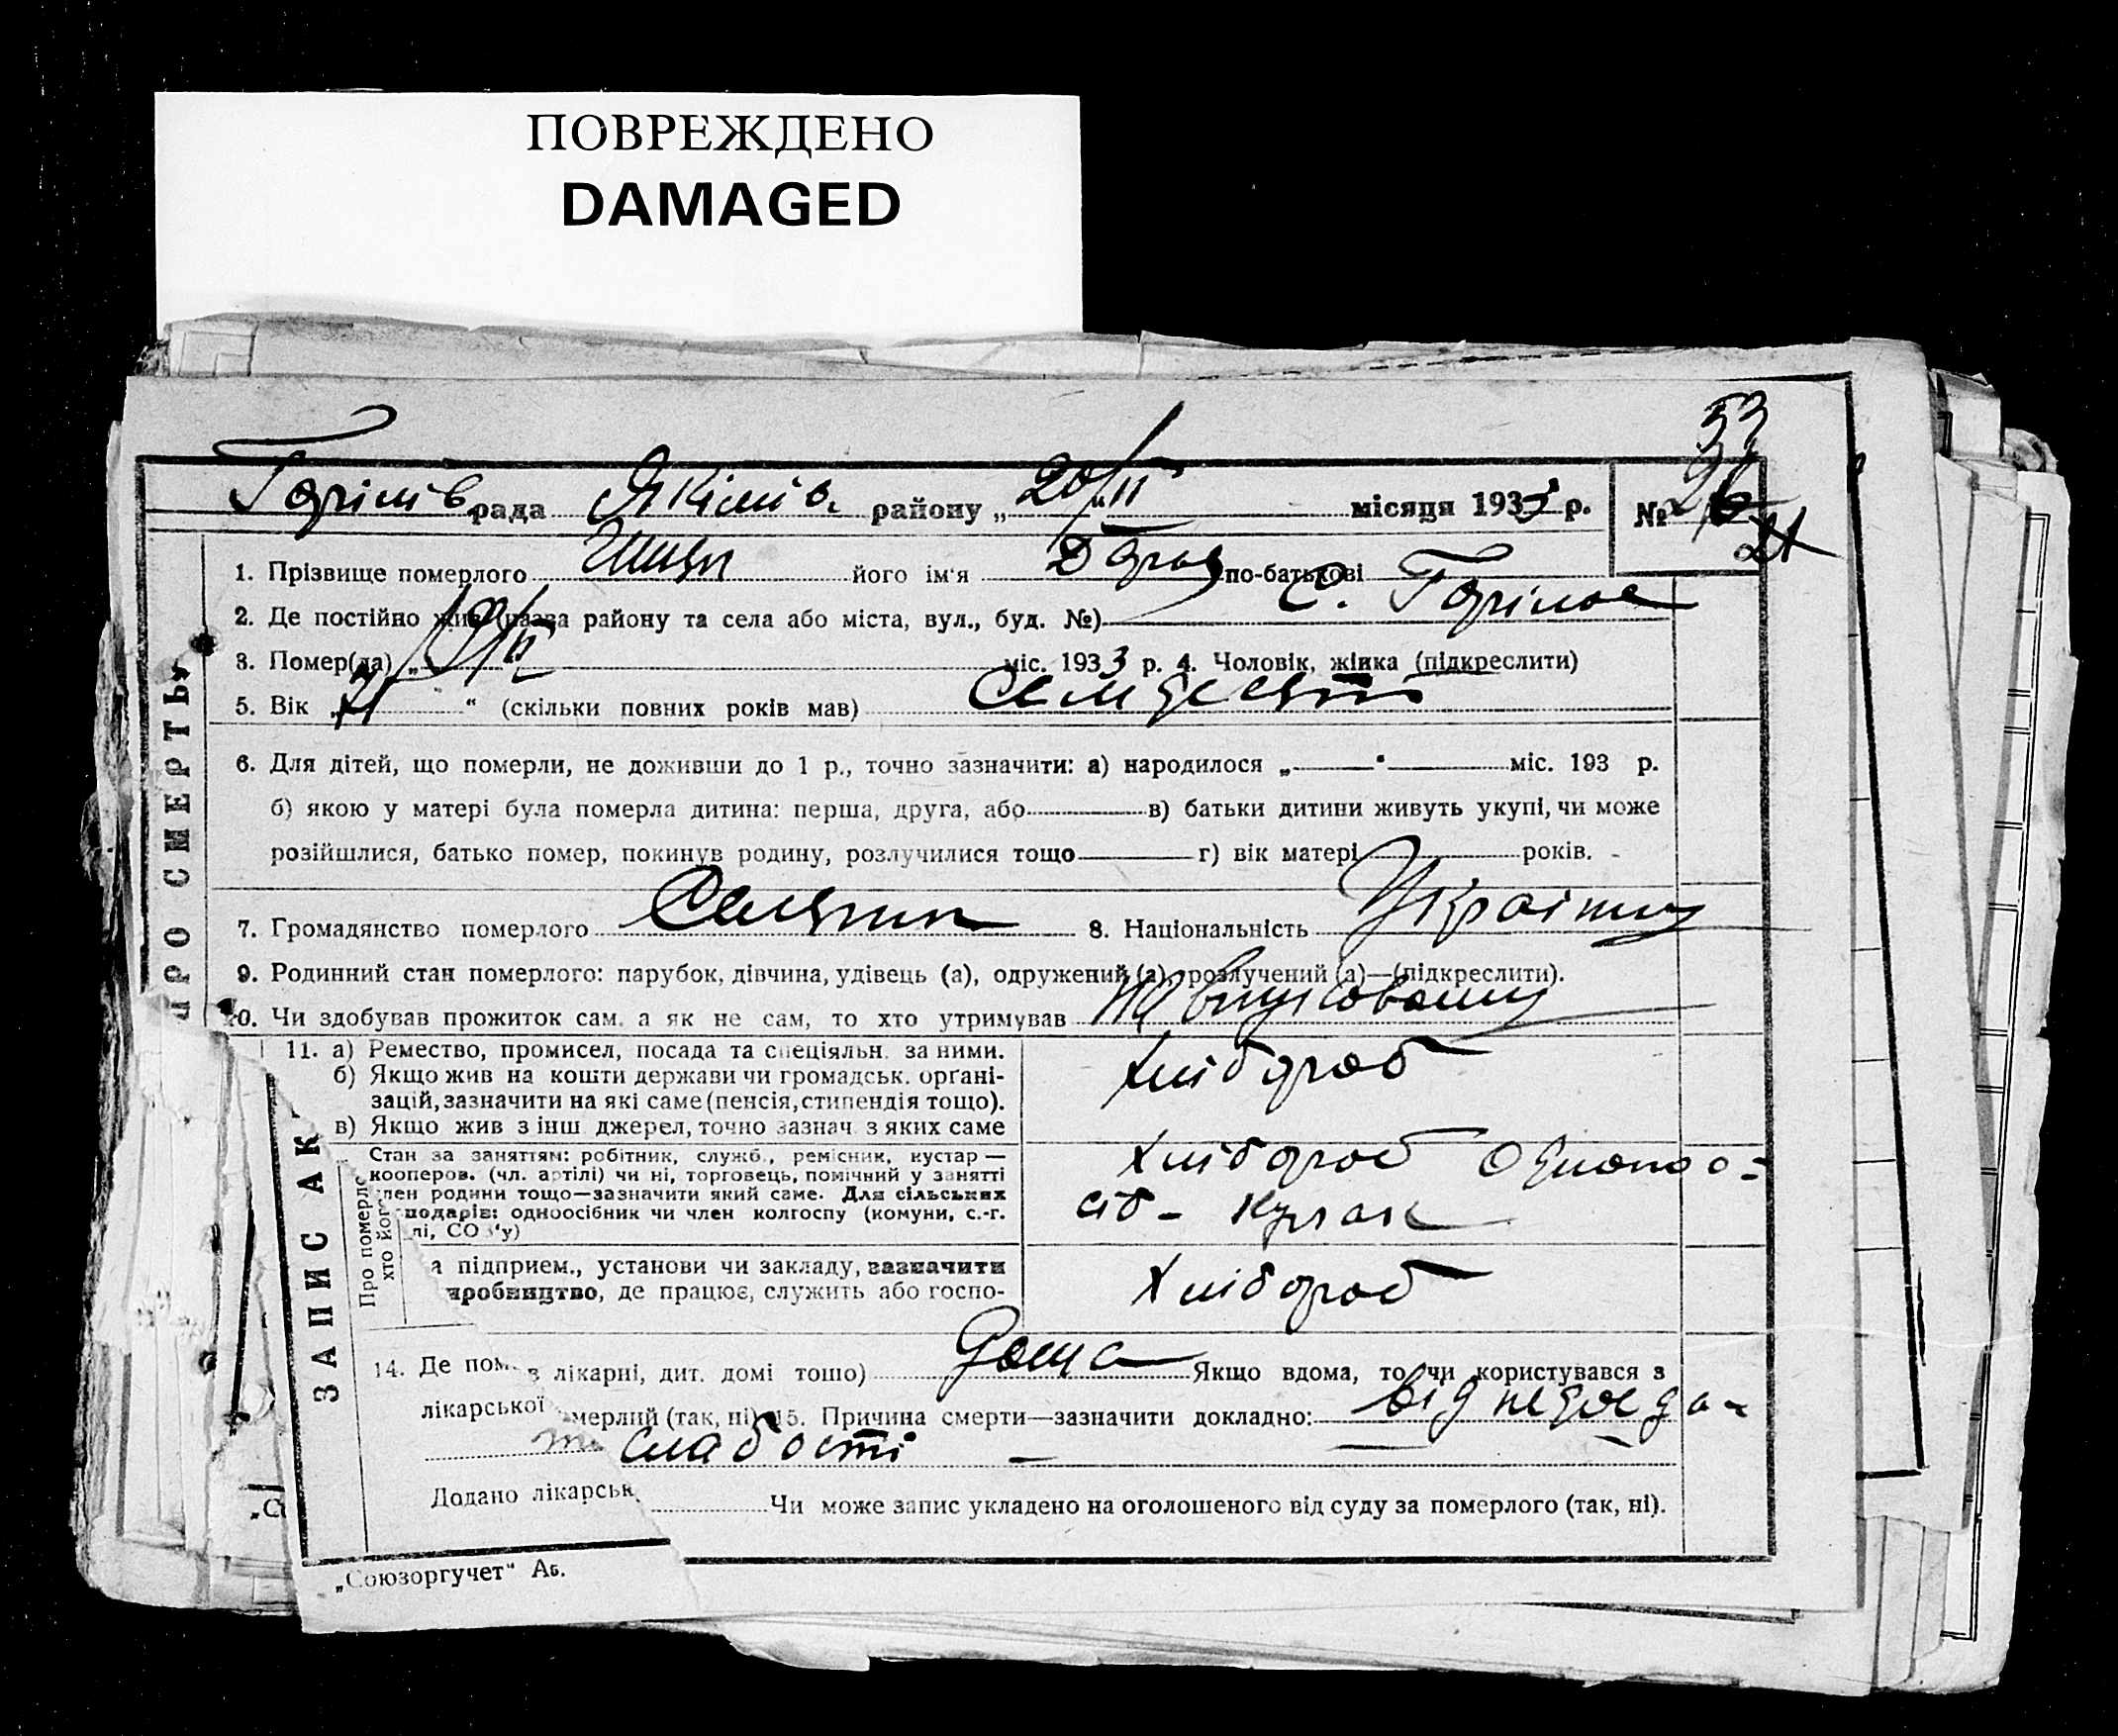 ПОВРЕЖДЕНО
DAMAGED
53
рада Якімів. району „20/II“ місяця 1933 р. №
21
1. Прізвище померлого його ім'я по-батькові
2. Де постійно жив (назва району та села або міста, вул., буд. №) С.
3. Помер(ла) „ міс. 1933 р. 4. Чоловік, жінка (підкреслити)
5. Вік „ “ (скільки повних років мав) Семдесят
6. Для дітей, що померли, не доживши до 1 р., точно зазначити: а) народилося „ “ міс. 193 р.
б) якою у матері була померла дитина: перша, друга, або в) батьки дитини живуть укупі, чи може
розійшлися, батько помер, покинув родину, розлучилися тощо г) вік матері років.
7. Громадянство померлого 8. Національність
9. Родинний стан померлого: парубок, дівчина, удівець (а), одружений (а), розлучений (а)—(підкреслити).
10. Чи здобував прожиток сам, а як не сам, то хто утримував
11. а) Ремество, промисел, посада та спеціяльн. за ними. Хлібороб
б) Якщо жив на кошти держави чи громадськ. органі-
зацій, зазначити на які саме (пенсія, стипендія тощо).
в) Якщо жив з інш. джерел, точно зазнач. з яких саме
Стан за заняттям: робітник, служб., ремісник, кустар — Хлібороб Одноо-
кооперов. (чл. артілі) чи ні, торговець, помічний у занятті
член родини тощо—зазначити який саме. Для сільських сіб- Кулак
подарів: одноосібник чи член колгоспу (комуни, с.-г.
лі, СО у)
а підприєм., установи чи закладу, зазначити Хлібороб
иробництво, де працює, служить або госпо-
14. Де пом в лікарні, дит. домі тощо) Дома Якщо вдома, то чи користувався з
лікарської мерлий (так, ні) 15. Причина смерти—зазначити докладно: від недоєда-
слабості
Додано лікарськ Чи може запис укладено на оголошеного від суду за померлого (так, ні).
„Союзоргучет“ Аб.
ЗАПИС АК
ПРО СМЕРТЬ
Про померло
хто йог